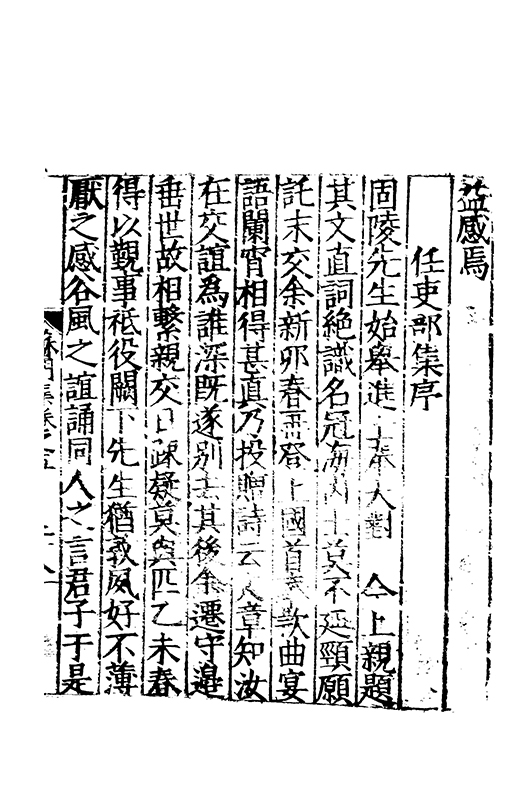 益感焉
任吏部集序
固陵先生始舉進士奉大對 今上親題
其文直詞絕識名冠海內士莫不延頸願
託末交余新卯春再登上國首款曲宴
語闌宵相得甚直乃投贈詩云文章知汝
在交誼為誰深既遂別去其後余遷守邉
垂世故相繫親交日疎疑莫與匹乙未春
得以覲事祗役闕下先生猶敦夙好不薄
厭之感谷風之誼誦同人之言君子于是
蘇門集卷之五